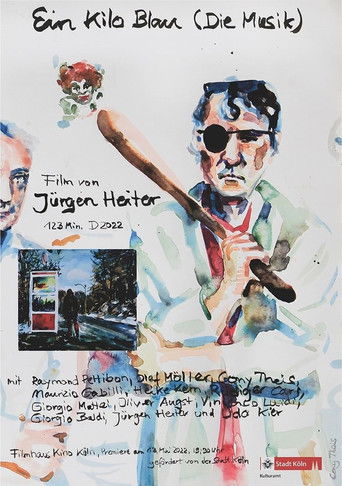 Ein Kilo Blau (Die Musik)
Film von
Jürgen Heiter
123 Min. D 2022
mit Raymond Pettibon, Olaf Möller, Crony Theis,
Maurizio Gabilli, Heike Kern,
Giorgio Mattei, Oliver Augst,
Giorgio Baldi, Jürgen Heiter und Udo Kier
Filmhaus Kino Köln, Premiere am Mai 2022,
gefördert von der Stadt Köln
Stadt Köln
Kulturamt
Theis